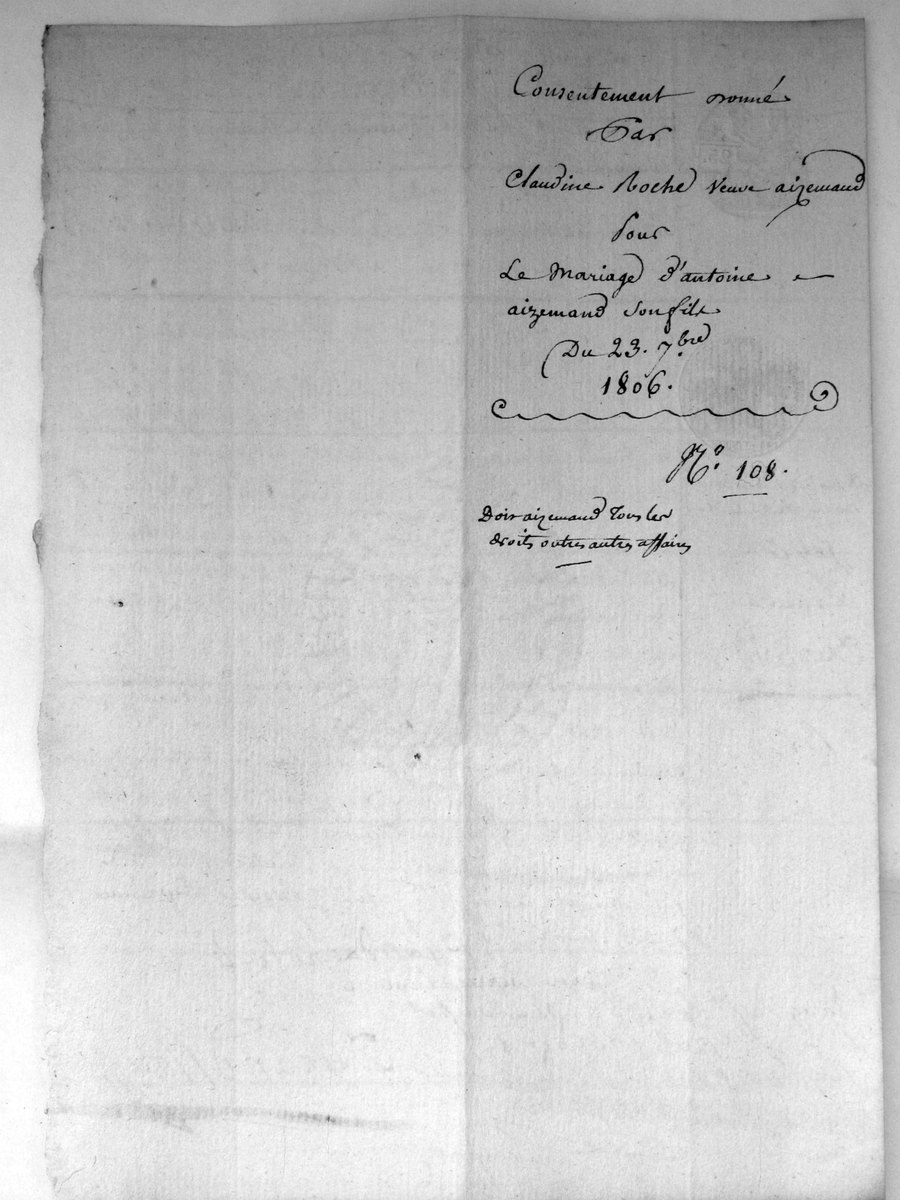 Consentement donné
Par
Claudine Roche Veuve aizemand
Pour
Le Mariage d'antoine
aizemand son fils
Du 23. 7.bre
1806.
No. 108.
Doit aizemand tous les
droits outres autres affaires